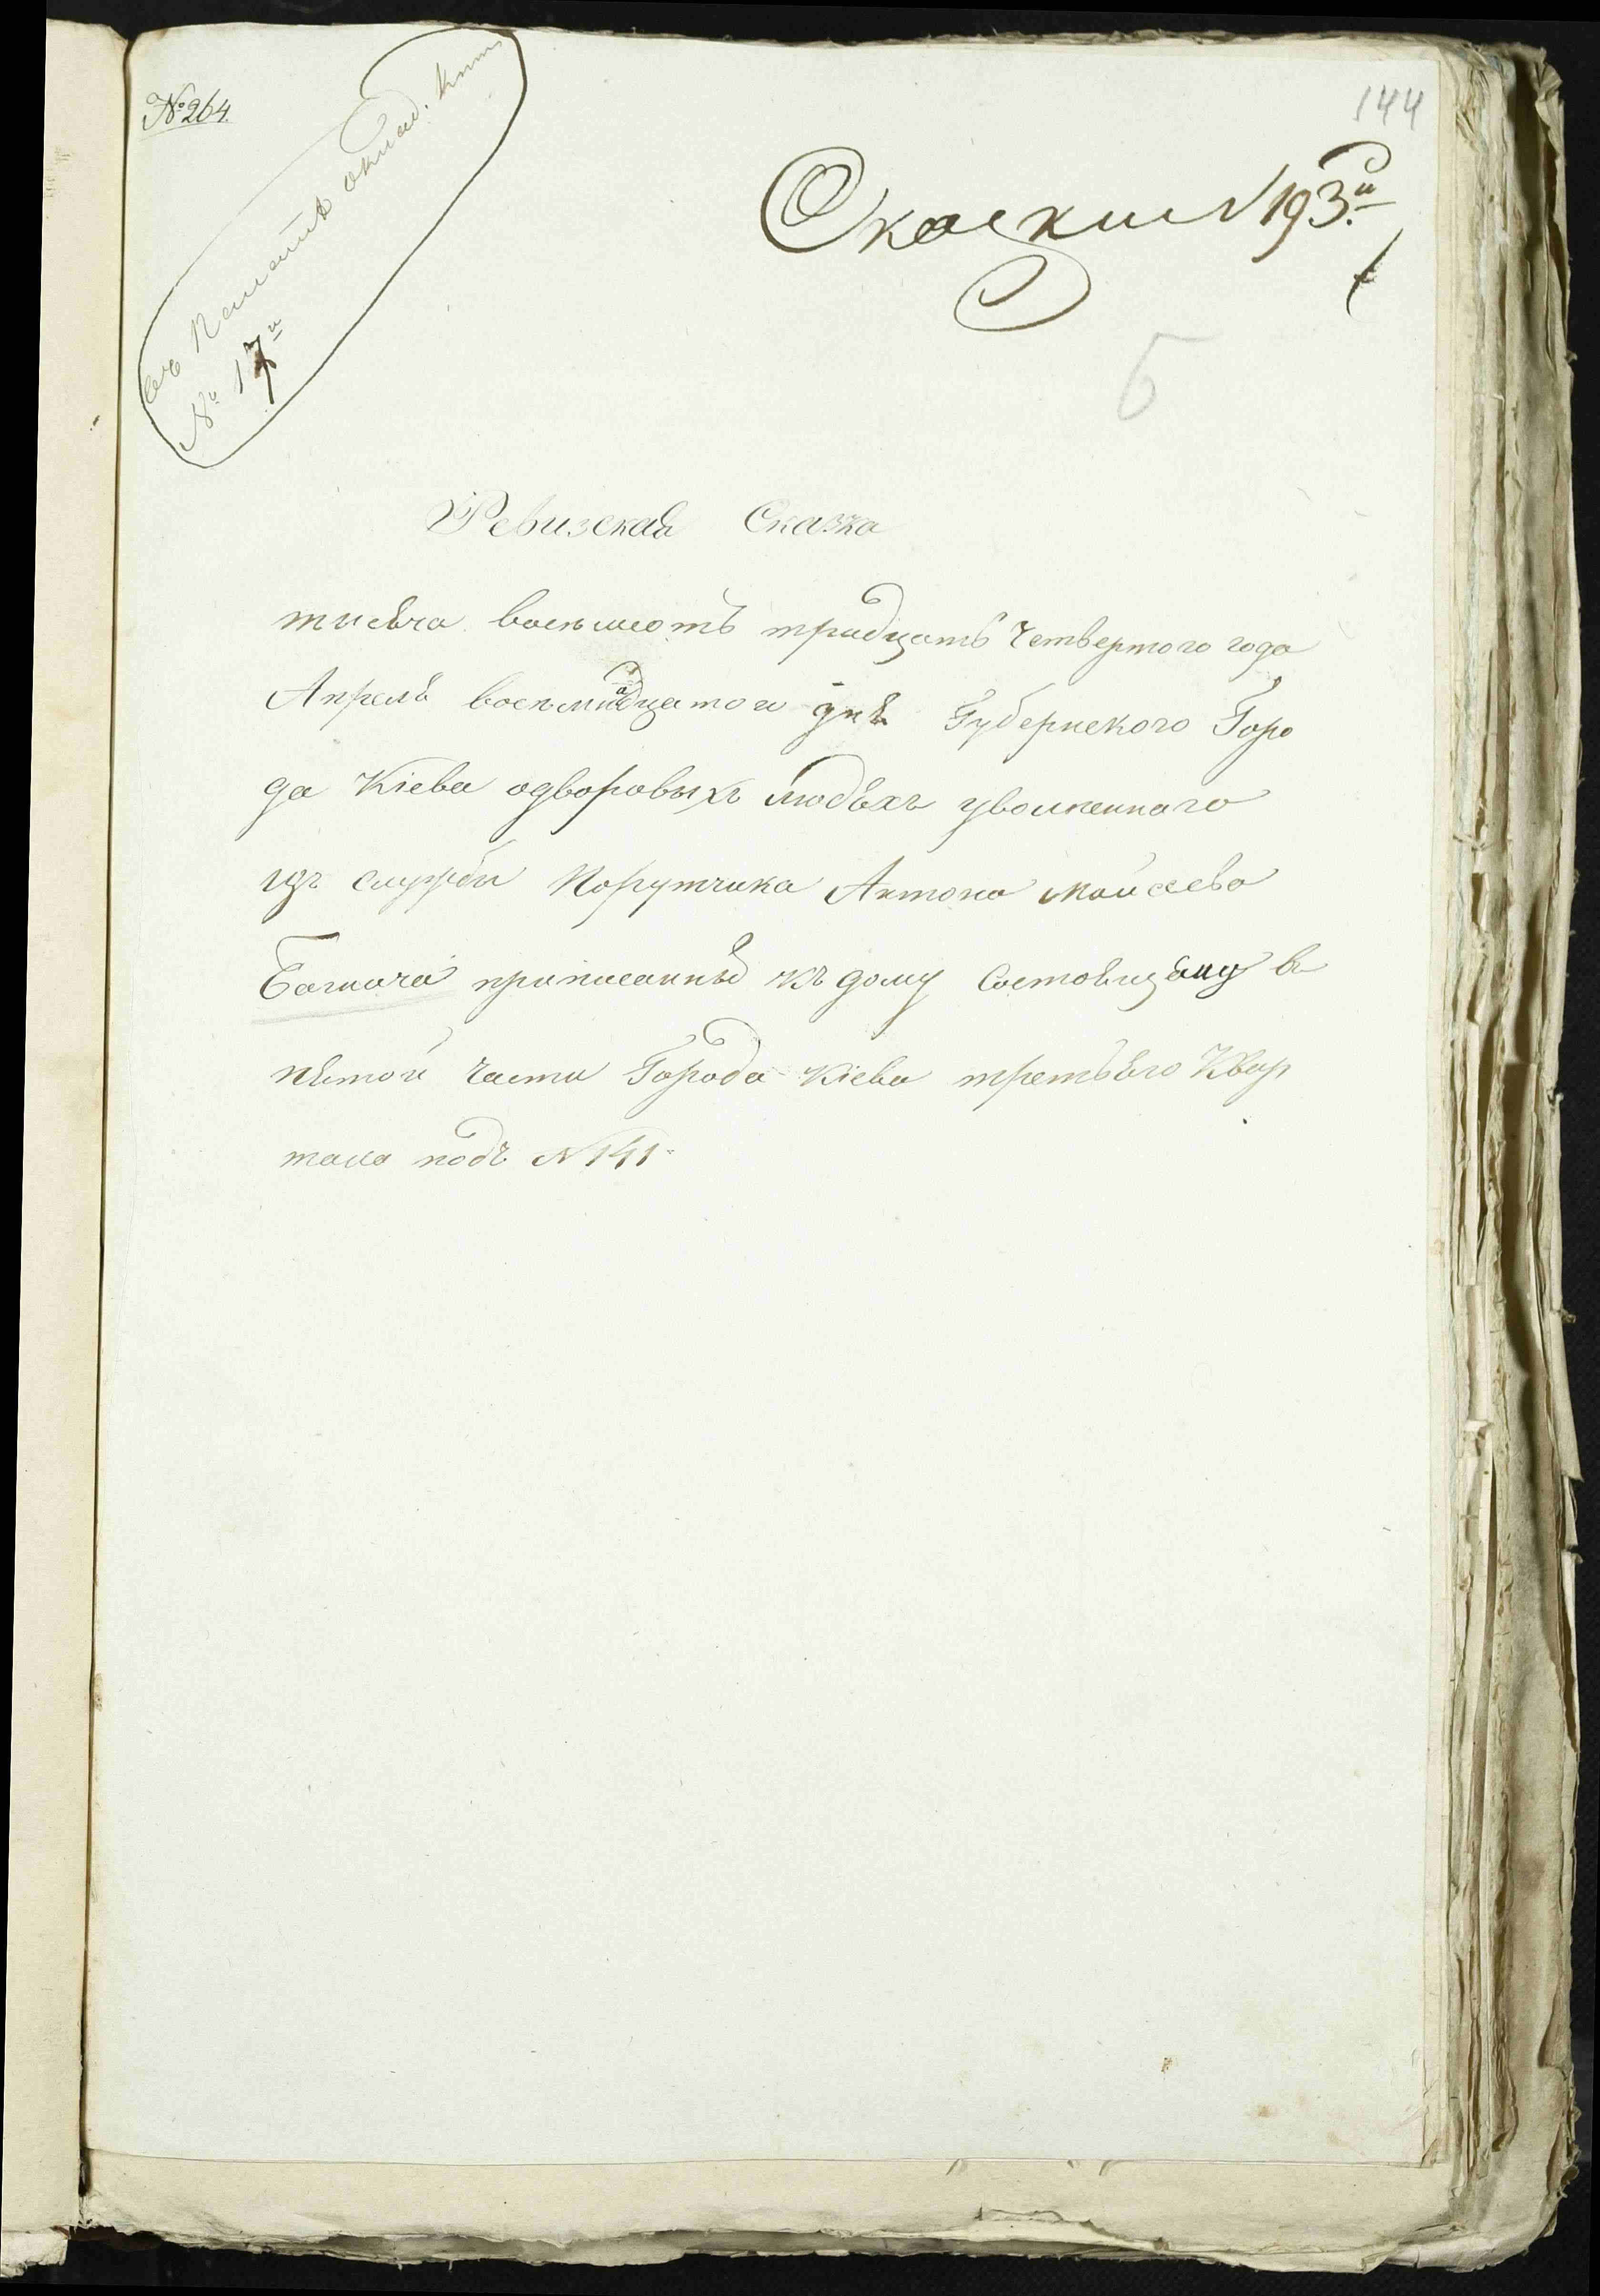 №264.
144
Сказки N 193й
№ 17й
Б
Ревизская Сказка
тисяча восемсотъ тридцать Четвертого года
Апреля восемнадцатого дня Губернского Горо
да Кіева одворовыхъ людяхъ уволненнаго
изъ службы Порутчика Антона Мойсеева
Багмача приписанныя къ дому Состоящему в
пятой части Города Кіева третьяго Квар
тала подъ N 141